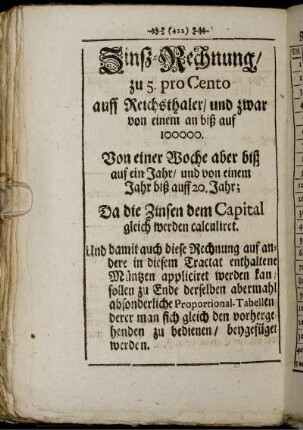 (422)
Zinß-Rechnung/
zu 5. pro Cento
auff Reichsthaler/ und zwar
von einem an biß auf
100000.
Von einer Woche aber biß
auf ein Jahr/ und von einem
Jahr biß auff 20. Jahr;
Da die Zinsen dem Capital
gleich werden calculiret.
Und damit auch diese Rechnung auf an-
dere in diesem Tractat enthaltene
Müntzen appliciret werden kan/
sollen zu Ende derselben abermahl
absonderliche Proportional-Tabellen
derer man sich gleich den vorherge-
henden zu bedienen/ beygefüget
werden.